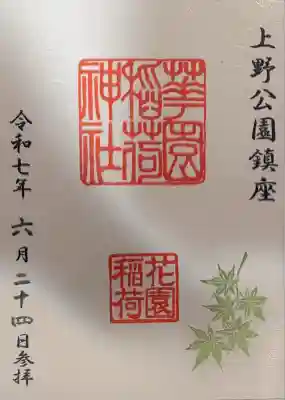 上野公園鎮座
華園
稲荷
神社
花園
稲荷
令和七年 六月二十四日参拝